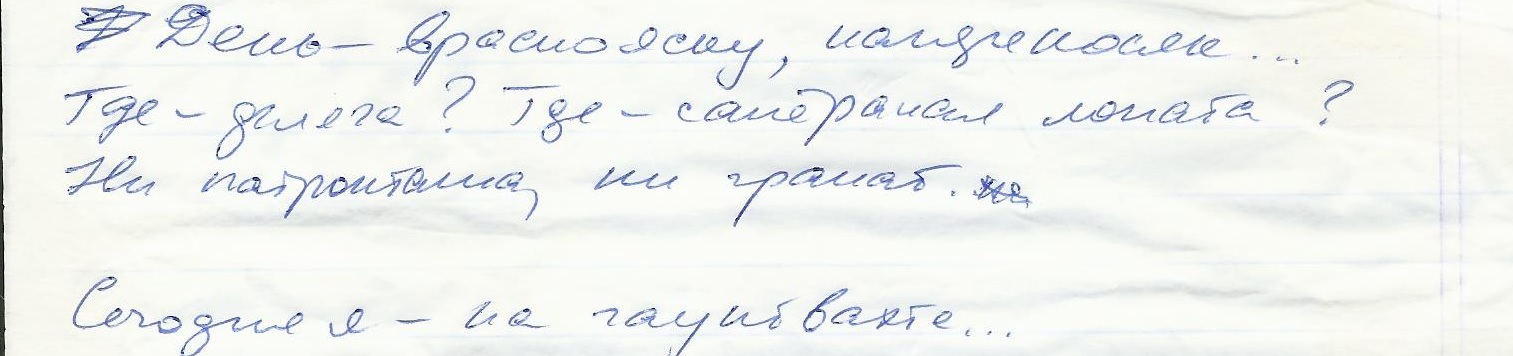 День – враспояску, наперекосяк...
Где – фляга? Где – сапёрная лопата?
Ни патронташа, ни гранат.
Сегодня я – на гауптвахте...